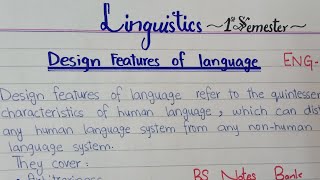 Linguistics ~1st Semester~
Design Features of language ENG-
Design features of language refer to the quintesser
characteristics of human language, which can dist
any human language system from any non-human
language system.
They cover:
BS Notes Bank